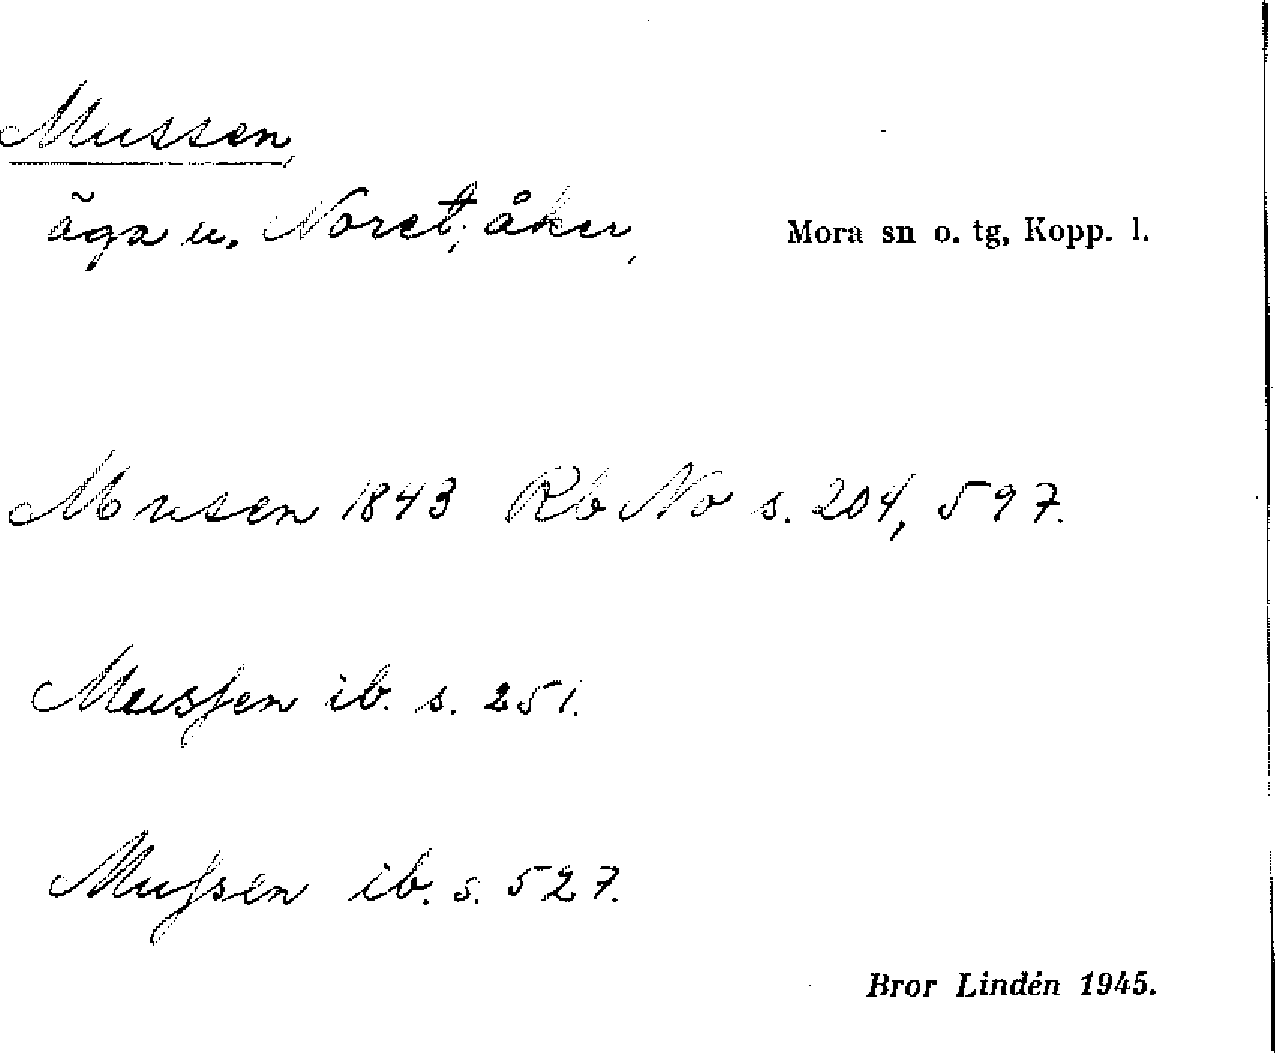 Mussen,
äga u. Noret; åker,
Mora sn o. tg, Kopp. l.
Musen 1843 Rb No s. 204, 597.
Musſen ib. s. 251.
Muſsen ib. s. 527.
Bror Lindén 1945.